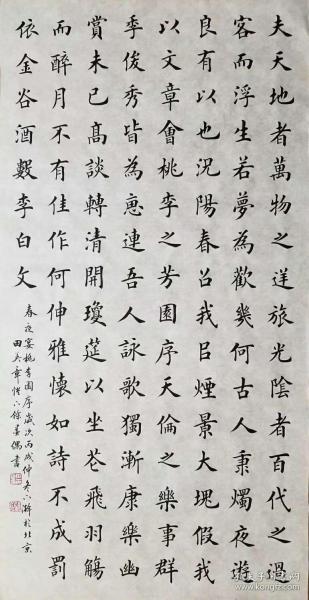 夫天地者萬物之逆旅光陰者百代之過
客而浮生若夢為歡幾何古人秉燭夜遊
良有以也況陽春召我㠯煙景大塊假我
以文章會桃李之芳園序天倫之樂事群
季俊秀皆為惠連吾人詠歌獨慚康樂幽
賞未已高談轉清開瓊莚以坐花飛羽觴
而醉月不有佳作何伸雅懷如詩不成罰
依金谷酒數李白文
春夜宴桃李園序歲次丙戌仲冬於北京
田英章餘墨偶書